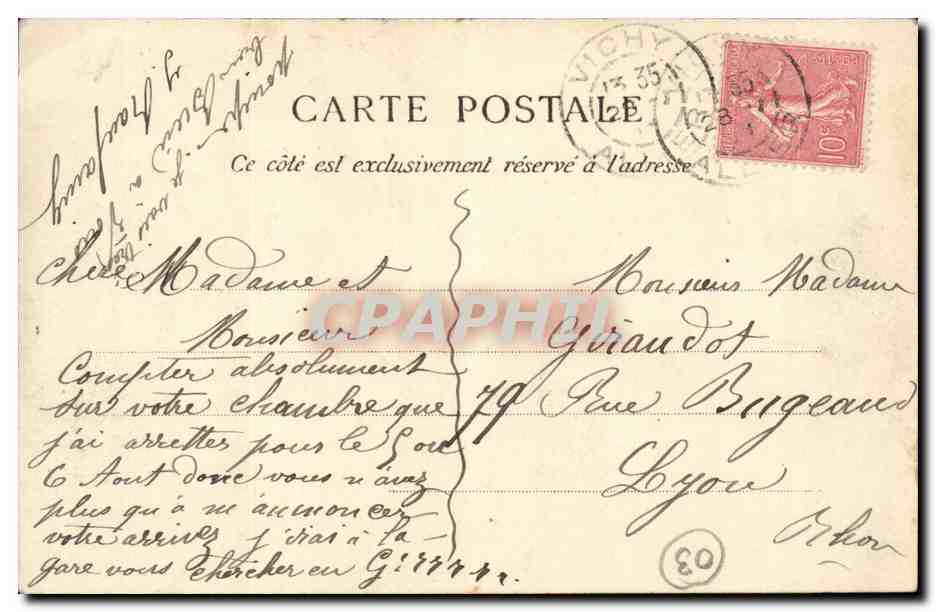 CARTE POSTALE
Ce côté est exclusivement réservé à l'adresse
VICHY
10c
Chère Madame et
Monsieur
Compter absolument
sur votre chambre que
j'ai arrettes pour le 5 ou
6 Aout donc vous n'avez
plus qu'à m'annoncez
votre arrivez j'irai à la
gare vous chercher en
Monsieur Madame
Giraudot
79 Rue Bugeaud
Lyon
Rhon
03
CPAPHIL